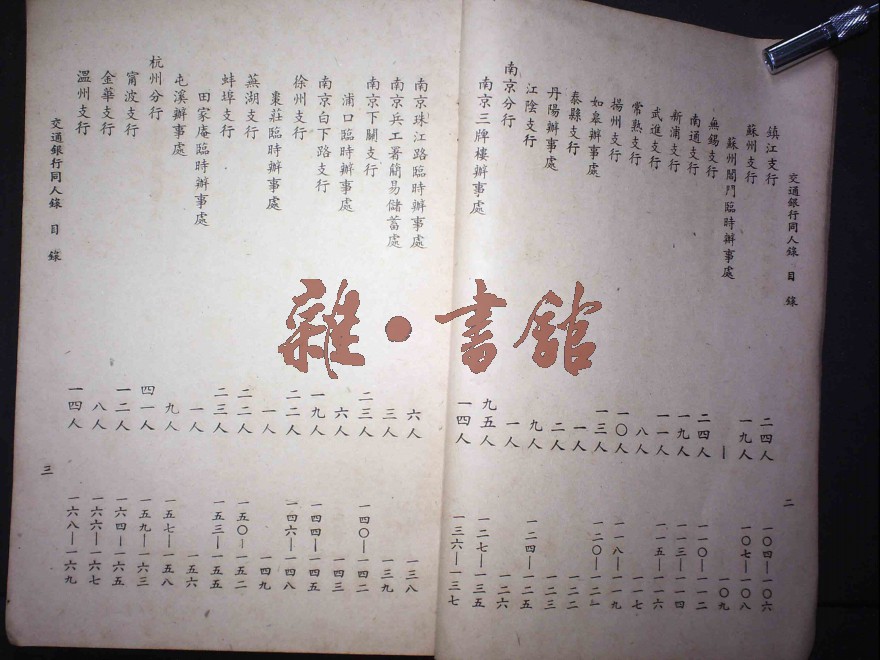 交通銀行同人錄 目錄 二
鎮江支行 二四人 一〇四—一〇六
蘇州支行 一九人 一〇七—一〇八
蘇州閶門臨時辦事處 — 一〇九
無錫支行 二四人 一一〇—一一二
南通支行 一九人 一一三—一一四
新浦支行 一一人 一一五—一一六
武進支行 八人 一一七
常熟支行 一〇人 一一八—一一九
揚州支行 一三人 一二〇—一二一
如皋辦事處 一人 一二二
泰縣支行 二人 一二三
丹陽辦事處 九人 一二四—一二五
江陰支行 一人 一二六
南京分行 九五人 一二七—一三五
南京三牌樓辦事處 一四人 一三六—一三七
南京珠江路臨時辦事處 六人 一三八
南京兵工署簡易儲蓄處 三人 一三九
南京下關支行 二三人 一四〇—一四二
浦口臨時辦事處 六人 一四三
南京白下路支行 一九人 一四四—一四五
徐州支行 二二人 一四六—一四八
棗莊臨時辦事處 一人 一四九
蕪湖支行 二二人 一五〇—一五二
蚌埠支行 二三人 一五三—一五五
田家庵臨時辦事處 一人 一五六
屯溪辦事處 九人 一五七—一五八
杭州分行 四一人 一五九—一六三
甯波支行 一二人 一六四—一六五
金華支行 八人 一六六—一六七
溫州支行 一四人 一六八—一六九
交通銀行同人錄 目錄 三
雜·書館